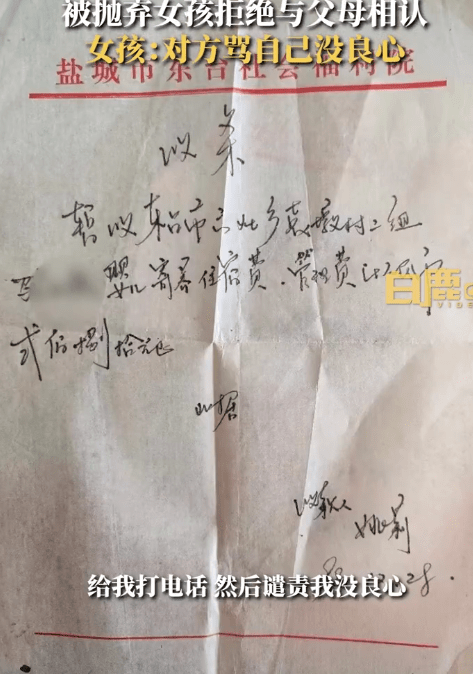 被抛弃女孩拒绝与父母相认
女孩:对方骂自己没良心
盐城市东台社会福利院
收条
暂收东台市
婴儿寄养住宿费、管理费
贰佰捌拾元正
此据
收款人
姚莉
白鹿
给我打电话 然后谴责我没良心